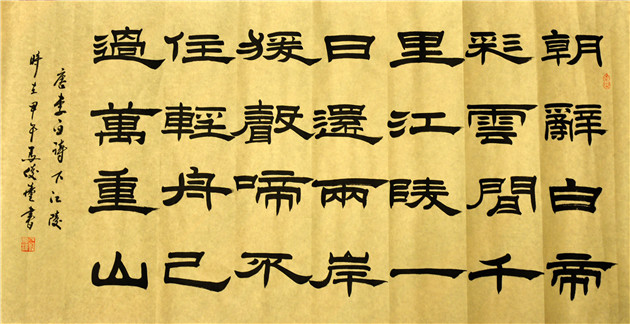 朝辭白帝
彩雲間千
里江陵一
日還兩岸
猨聲啼不
住輕舟已
過萬重山
唐李白詩下江陵
時在甲午書